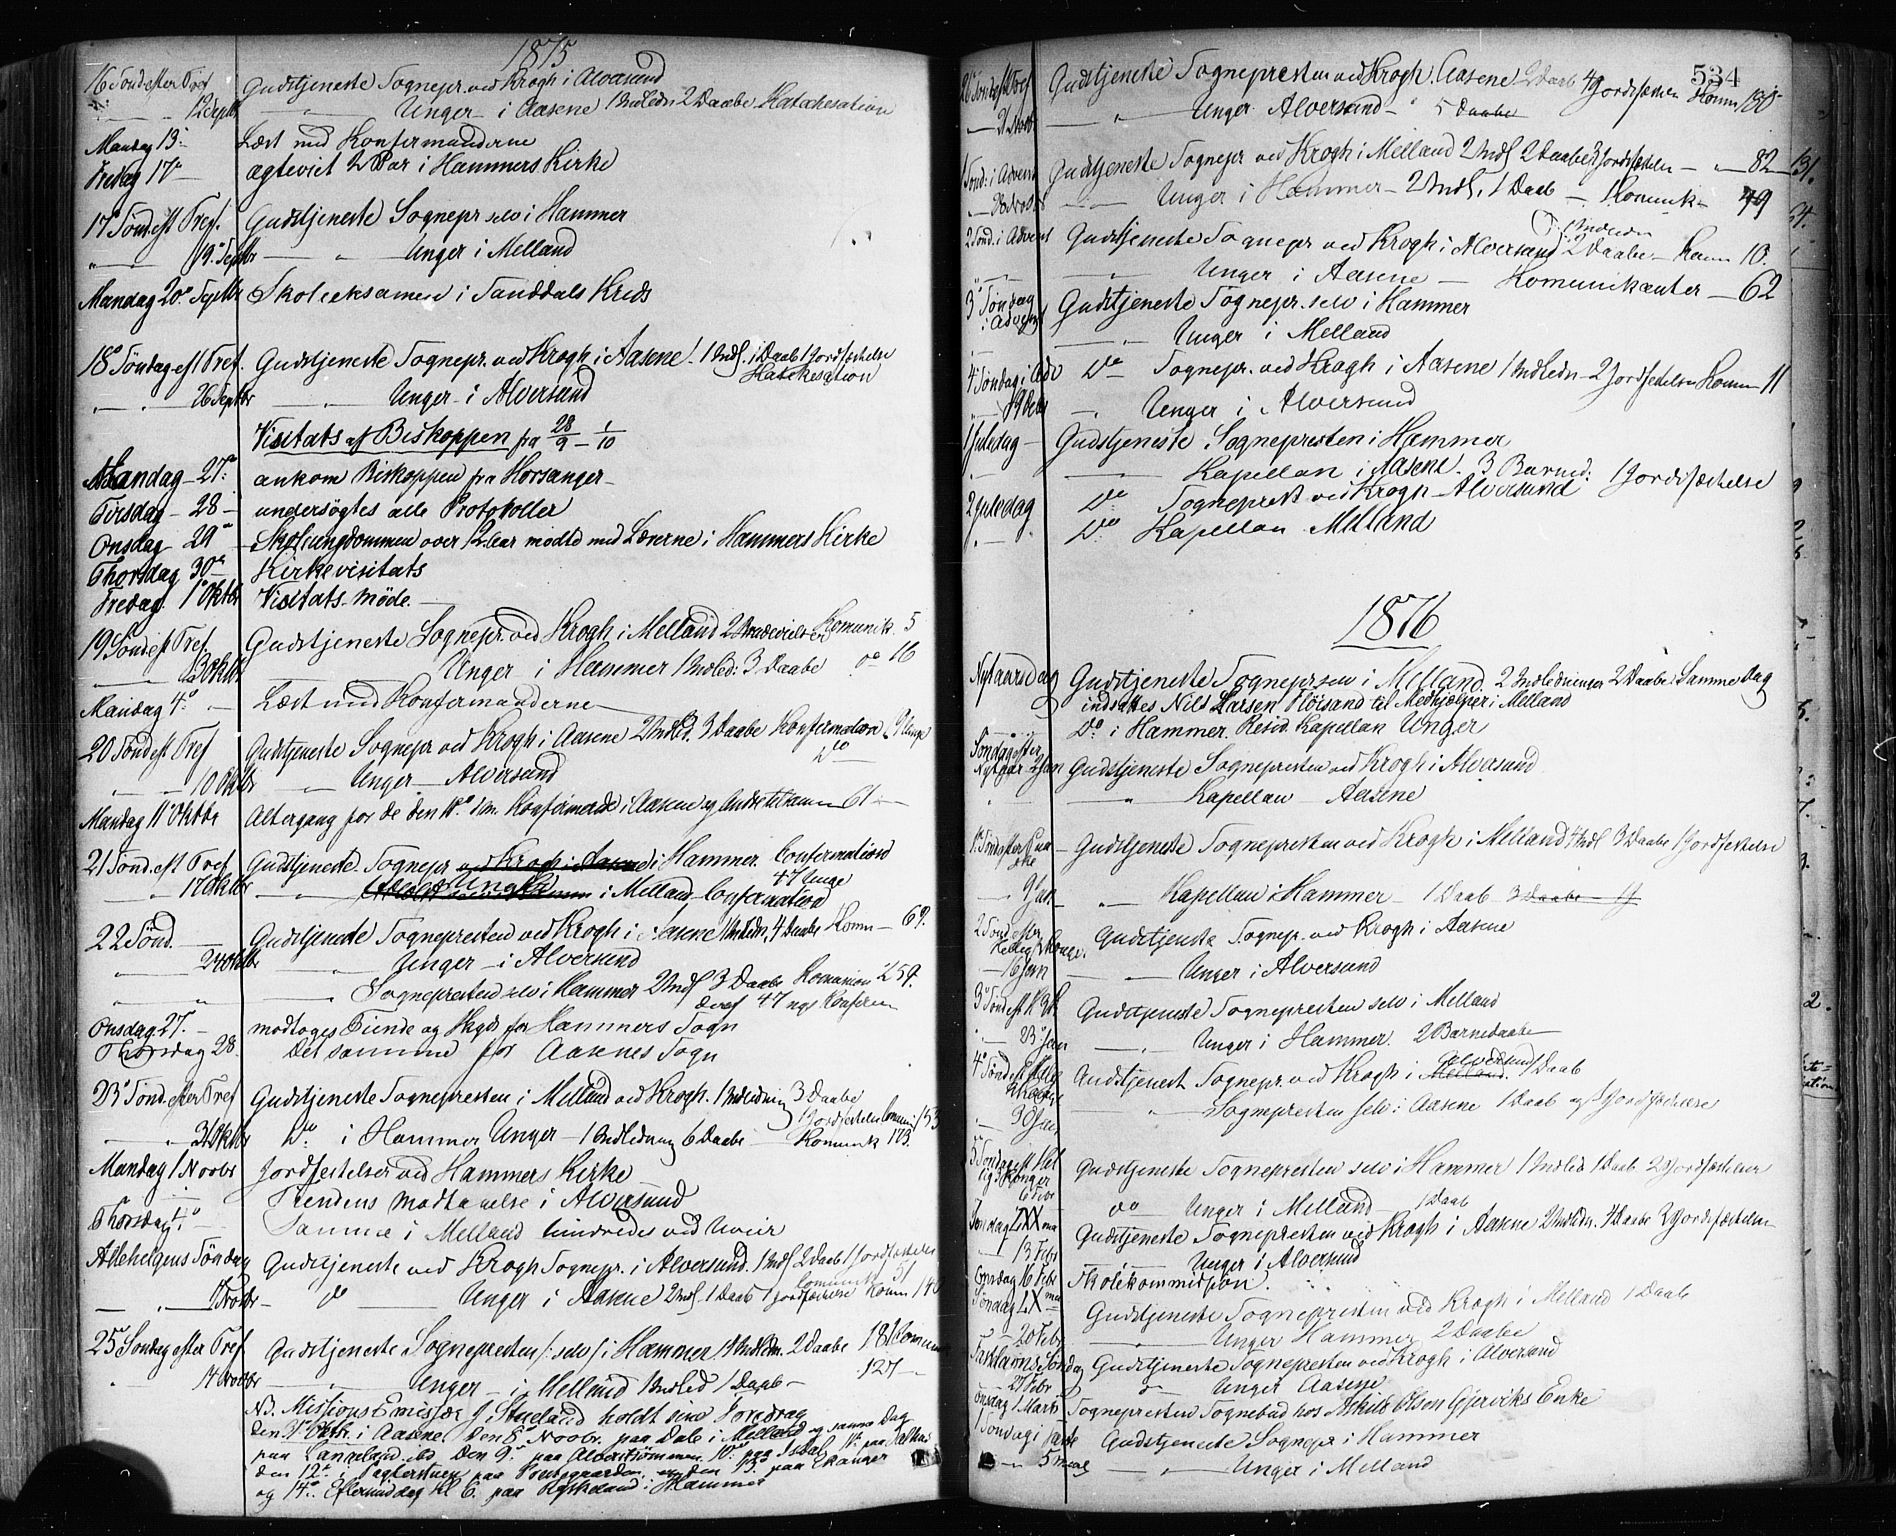 1875
16 Søndefter Tref Gudstjeneste Sognepr. ved Krogh i Alversund
" — 12 Septbr — " — Unger — i Aasene 1 Indledn 2 Daabe Katechesation
Mandag 13. Læst med Konfirmanderne
Fredag 17 — agteviet 2 Par i Hammers Kirke
17 Sønd. eft Tref. Gudstjeneste Sognepr selv i Hammer
" — 19. Septbr — " — Unger i Melland
Mandag 20. Septbr Skoleeksamen i Tanddals Kreds
18 Søndag eft Tref. Gudstjeneste Sognepr. ved Krogh i Aasene. 1 Indl. 1 Daab 1 Jordfæstelse
Katekesation
— " — 26 Septbr — " — Unger i Alversund
Visitats af Biskoppen fra 28/9 – 1/10
Mandag – 27. ankom Biskoppen fra Horsanger –
Tirsdag – 28 – undersøgtes alle Protokoller
Onsdag 29 – Skolungdommen over 12 Aar mødte med Lærerne i Hammers Kirke
Thorsdag 30 – Kirkevisitats
Fredag 1 Oktbr Visitats-Møde. —
19 Sønd. eft Tref. Gudstjeneste Sognepr. ved Krogh i Melland 2 Komunik. 5
3 Oktbr — Unger i Hammer 1 Indled: 3 Daabe do 16
Mandag 4. — Læst med Konfirmanderne —
20 Sønd. eft Tref Gudstjeneste Sognepr ved Krogh i Aasene 2 Indled. 3 Daabe Konfirmation
do
" — 10 Oktbr — " — Unger — Alversund
Mandag 11 Oktbr Altergang for de den 10. dm. Konfirmerede i Aasene og Andre tilsammen 61 —
21 Sønd. eft Tref Gudstjeneste Sognepr ved Krogh i Aasene i Hammer. Confirmation
47 Unge
" 17 Oktbr — " — Unger i Melland – Confirmation
22 Sønd. — Gudstjeneste Sognepresten ved Krogh i Aasene 1 Indledn, 4 Daabe Komm – 69.
24 Oktbr — " — Unger – i Alversund
" " — Sognepresten selv i Hammer 2 Indl 3 Daabe Komunion 259.
deraf 47 nys Konfirm
Onsdag 27. — modtoges Tiende og for Hammers Sogn
Thorsdag 28. Det samme for Aasenes Sogn
23 Sønd. efter Tref Gudstjeneste Sognepresten i Melland ved Krogh. 1 Indledning 3 Daabe
1 Jordfæstelse Comuni 153
" " 31 Oktbr Do i Hammer Unger – 1 Indledning 6 Daabe – Komunik 173.
Mandag 1 Novbr Jordfestelser ved Hammers Kirke
Tiendens Modtagelse i Alversund
Thorsdag 4. — Samme i Melland hindredes ved Uveir
Allehelgens Søndag Gudstjeneste ved Krogh Sognepr. i Alversund. 1 Indl 2 Daab 1 Jordfæstelse
Comunik 51
— " — 7 Novbr – do — Unger i Aasene 2 Indl. 1 Daab 1 Jordfæstelse Komm 140
25 Søndag efter Tref. Gudstjeneste Sognepresten /: selv / i Hammer 4 Indledn. 2 Daabe 181 Comun
" 14 Novbr — " — Unger – i Melland 1 Indled 1 Daab – 127 —
N.B. Missions Emissær J. Stueland holdt sine Foredrag
den 31 Oktb. i Aasene. Den 8 Novbr. paa Dale i Melland og samme Dag
paa Langeland, do Den 9. paa Alverstrømmen, 10 paa Isdal 11. paa
den 12 i paa den 13. paa Ekanger
og 14. Eftermiddag Kl 6. paa i Hammer
534
26 Sønd eft Tref Gudstjeneste Sognepresten ved Krogh. Aasene 2 Daab 4 Jordfæstelser Komm 130
— 21 Novb — " — Unger Alversund – 5 Daabe
1 Sønd: i Advent Gudstjeneste Sognepr ved Krogh i Melland 2 Indl 2 Daabe 3 Jordfæstelser — " — 82
— 28 Novbr — " — Unger i Hammer – 2 Indl, 1 Daab — Komunik – 79
1 Indledn
2 Sønd. i Advent Gudstjeneste Sognepr ved Krogh i Alversund 2 Daabe – Komm 10.
— " — — Unger i Aasene — Komunikanter — 62
3 Søndag i Advent Gudstjeneste Sognepr. selv i Hammer
— " — Unger i Melland
4 Søndag i Adv Do Sognepr. ved Krogh i Aasene 1 Indledn – 2 Jordfestelser Komm 11
— " 19 Debr — " Unger i Alversund
1 Juledag – Gudstjeneste Sognepresten i Hammer
" — Kapellan i Aasene. 3 Barned: 1 Jordfæstelse
2 Juledag Do Sogneprest ved Krogh – Alversund
" — " Do Kapellan Melland
1876
Nytaarsdag Gudstjeneste Sognepr selv i Melland. 2 Indledninger 2 Daabe. Samme Dag
indsattes Nils Larsen Fløisand til Medhjælper i Melland
Do i Hammer. Resid. Kapellan Unger
Søndag efter Nytaar 2 Jan Gudstjeneste Sognepresten ved Krogh i Alversund
" " Kapellan Aasene
Gudstjeneste Sognepresten ved Krogh i Melland 4 Indl 3 Daabe 1 Jordfestelse
— 9 Jan — " — Kapellan i Hammer – 1 Daab 3 Daabe
2 Sønd efter Hellig 3 Konge. Gudstjeneste Sognepr. ved Krogh i Aasene
— 16 Jan — Unger i Alversund
3 Sønd eft H 3 K Gudstjeneste Sognepresten selv i Melland
" 23 Jan — " — Unger i Hammer. 2 Barnedaabe
4 Sønd eft Hellig 3 Konger Gudstjenest Sognepr. ved Krogh i Melland. Alversund 1 Daab
— 30 Jan " — Sognepresten selv i Aasene 1 Daab og 1 Jordfæstelse
5 Søndag eft Hellig 3 Konger Gudstjeneste Sognepresten selv i Hammer 1 Indled 1 Daab. 2 Jordfæstelser
6 Febr do — Unger i Melland – 1 Daab
Søndag LXX ma Gudstjeneste Sognepresten ved Krogh i Aasene 2 Indledn. 4 Daabe 2 Jordfæstelser
— 13 Febr — " — Unger i Alversund
Onsdag 16 Febr Skolekommission.
Søndag LX ma Gudstjeneste Sognepresten ved Krogh i Melland 1 Daab
— 20 Febr — Unger Hammer 2 Daabe
Fastelavns Søndag Gudstjeneste Sognepresten ved Krogh i Alversund
— 27 Febr " — Unger Aasene
Onsdag 1 Marts Sognepresten Sognebud hos Olsen Gjerviks Enke
1 Søndag i Faste Gudstjeneste Sognepr i Hammer
" — 5 Marts — " — Unger i Melland